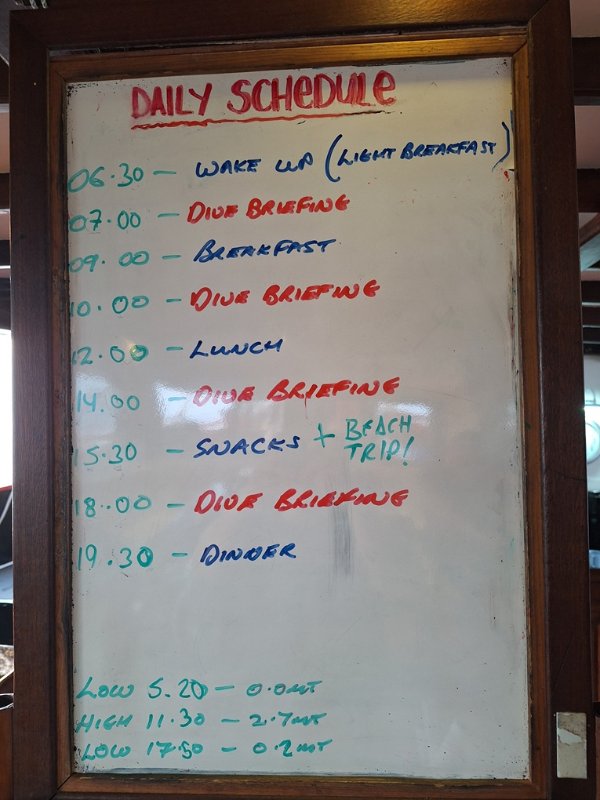 DAILY SCHEDULE
06.30 — WAKE UP (LIGHT BREAKFAST)
07.00 — DIVE BRIEFING
09.00 — BREAKFAST
10.00 — DIVE BRIEFING
12.00 — LUNCH
14.00 — DIVE BRIEFING
15.30 — SNACKS + BEACH TRIP!
18.00 — DIVE BRIEFING
19.30 — DINNER
LOW 5.20 — 0.0MT
HIGH 11.30 — 2.7MT
LOW 17.50 — 0.2MT